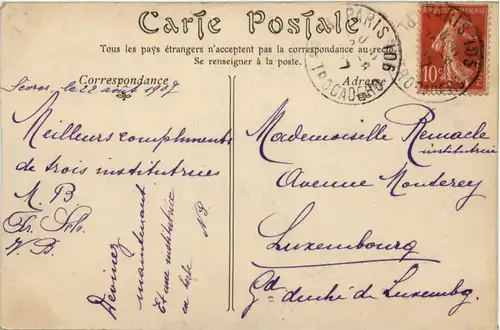 Carte Postale
Tous les pays étrangers n'acceptent pas la correspondance au recto
Se renseigner à la poste.
Correspondance
Adresse
Sèvres, le 22 août 1907
Meilleurs compliments
de trois institutrices
M. B.
Fr. Sch.
V. B.
Devinez
maintenant
Et une institutrice
en
N. B.
Mademoiselle Remacle
institutrice
Avenue Monterey
Luxembourg
Gd duché de Luxembg.
PARIS 106
TROCADERO
PARIS 106
10c